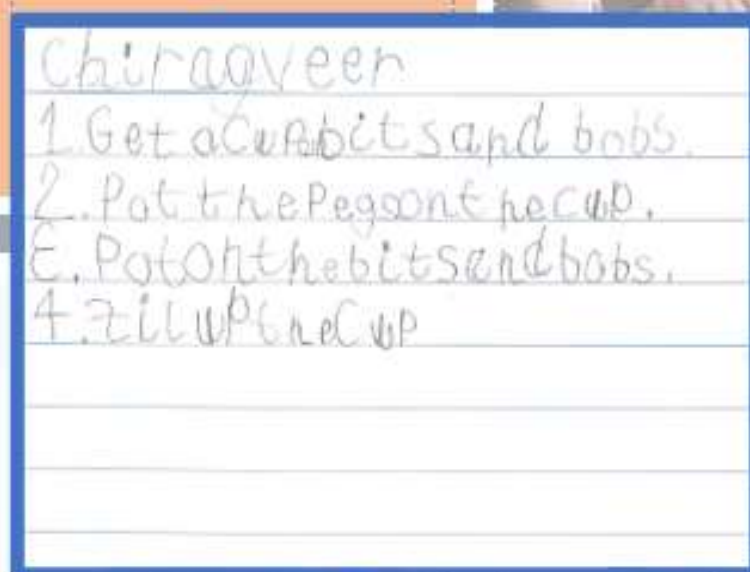 Chiragveer
1 Get a Cup bits and bobs.
2. Pot the Pegs ont he cup.
3. Pot on the bits and bobs.
4. Zil up the Cup